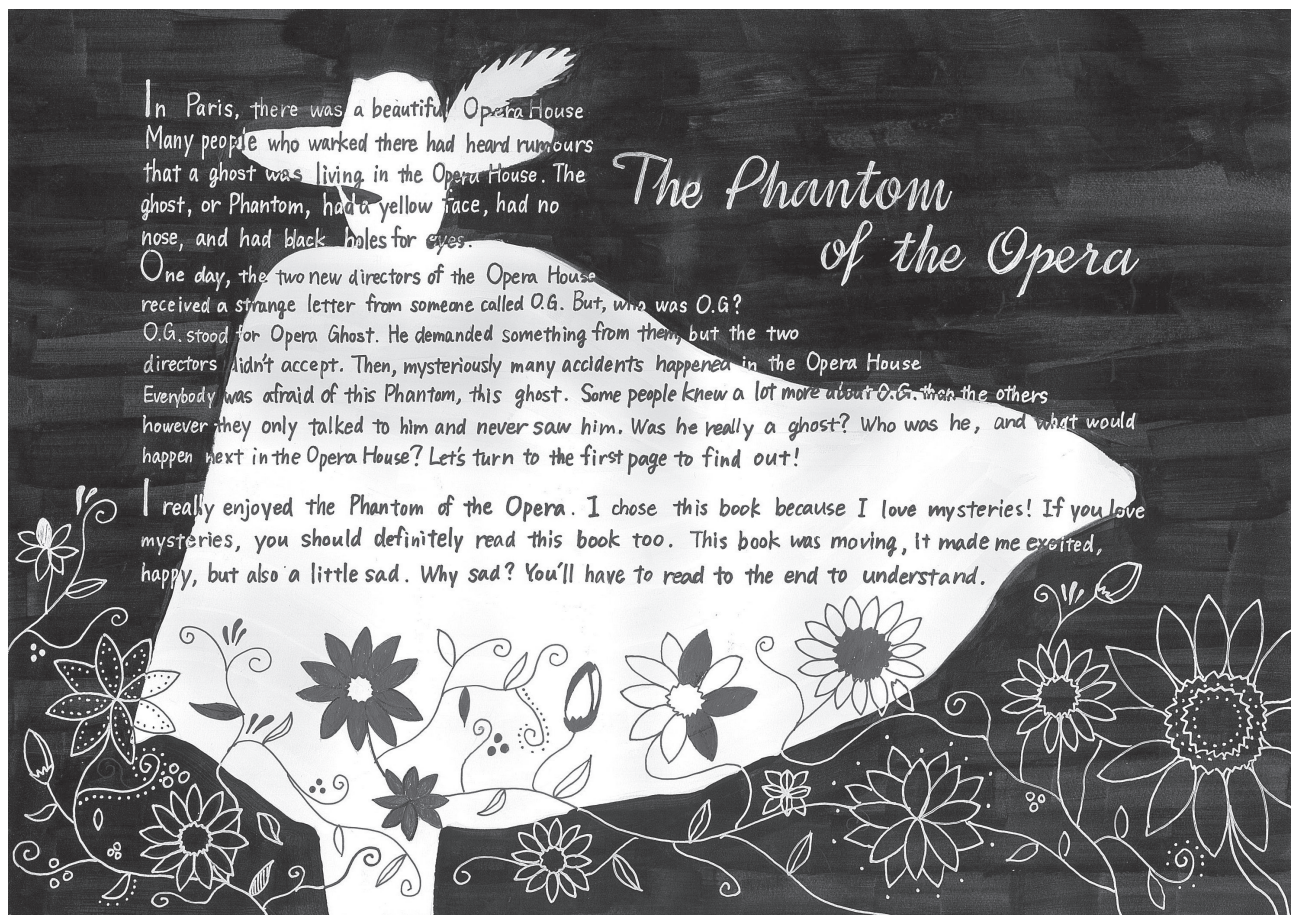 In Paris, there was a beautiful Opera House
Many people who warked there had heard rumours
that a ghost was living in the Opera House. The
ghost, or Phantom, had a yellow face, had no
nose, and had black holes for eyes.
The Phantom
of the Opera
One day, the two new directors of the Opera House
received a strange letter from someone called O.G. But, who was O.G?
O.G. stood for Opera Ghost. He demanded something from them, but the two
directors didn't accept. Then, mysteriously many accidents happened in the Opera House
Everybody was afraid of this Phantom, this ghost. Some people knew a lot more about O.G. than the others
however they only talked to him and never saw him. Was he really a ghost? Who was he, and what would
happen next in the Opera House? Let's turn to the first page to find out!
I really enjoyed the Phantom of the Opera. I chose this book because I love mysteries! If you love
mysteries, you should definitely read this book too. This book was moving, it made me excited,
happy, but also a little sad. Why sad? You'll have to read to the end to understand.